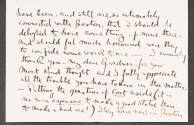 have been, and still are, so intimately
connected with Boston, that I should be
delighted to have something of mine there.
and should feel much honoured were they
to confide some work to me — I heartily
thank you, my dear for you
most kind thought and I fully appreciate
all the trouble you have taken in the matter.
— Putting the question of cost aside (it
no more expensive to make a good statue than
to make a bad one!) They have now in Boston